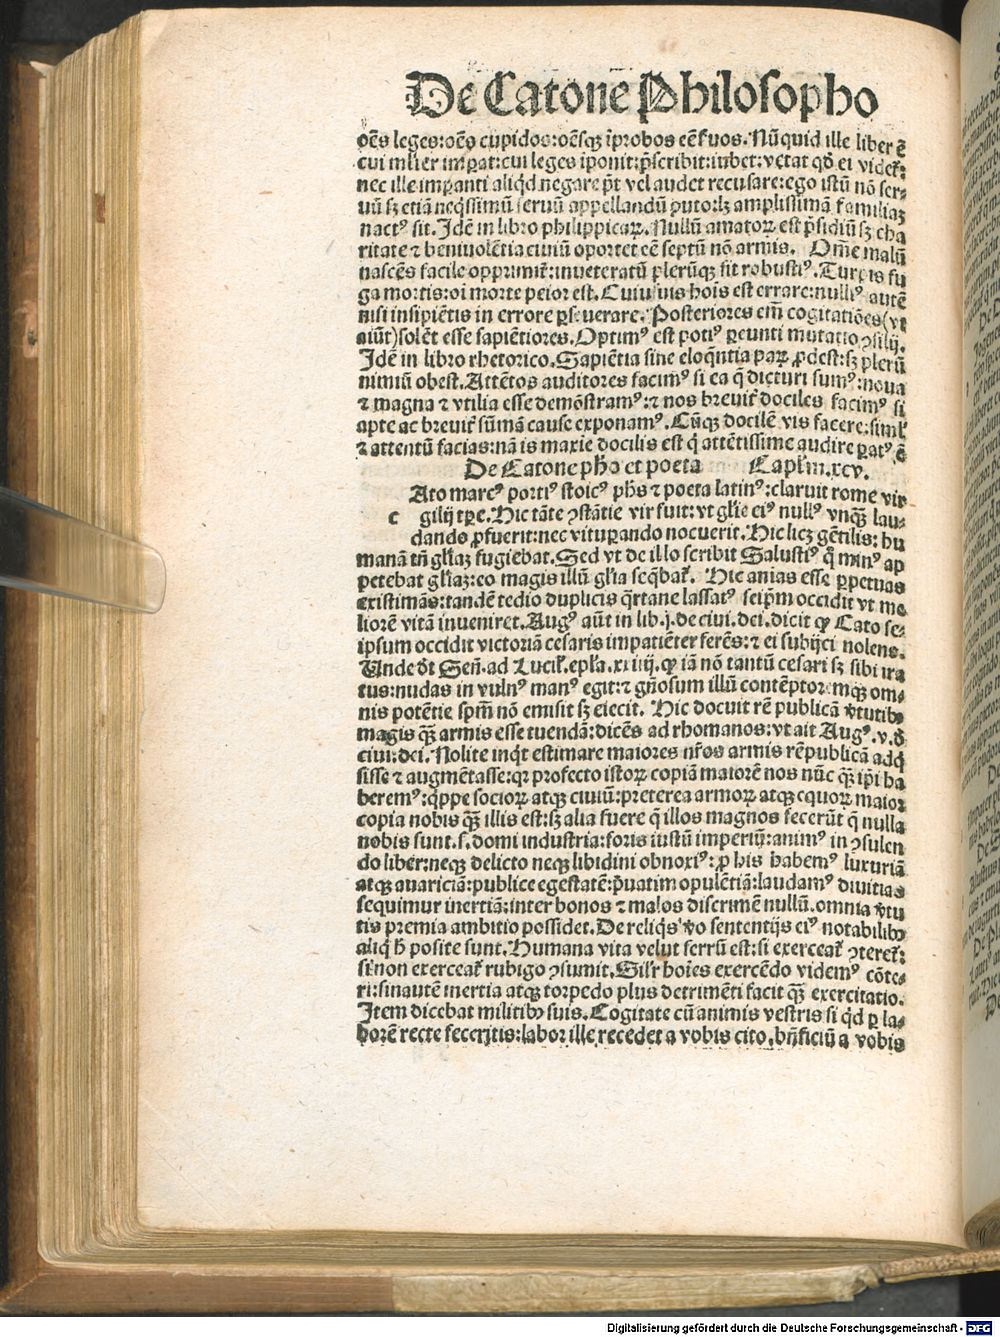 De Catone Philosopho
oēs leges: oēs cupidos: oēsqꝫ īprobos eē ẜuos. Nūquid ille liber ē
cui mlier imꝑat: cui leges īponit: p̄scribit: iubet: vetat qđ ei videt̄:
nec ille imꝑanti aliq̇d negare pt̄ vel audet recusare: ego istū nō ser-
uū sꝫ etiā neq̇ssimū seruū appellandū puto: lꝫ amplissimā familiaꝫ
nactꝰ sit. Idē in libro philippicaꝝ. Nullū amatoꝝ est p̄sidiū sꝫ cha
ritate ⁊ beniuolētia ciuiū oportet eē septū nō armis. Oīne malū
nascēs facile opprimit̄: inueteratū plerūqꝫ fit robustiꝰ. Turpis fu
ga mortis: oī morte peior est. Cuiusuis hoīs est errare: nulliꝰ autē
nisi insipiētis in errore ꝑseuerare. Posteriores em̄ cogitatiōes (vt
aiūt) solēt esse sapiētiores. Optimꝰ est potiꝰ ꝑeunti mutatio ꝯsilij.
Idē in libro rhetorico. Sapiētia sine eloq̄ntia paꝝ ꝓdest: sꝫ plerū
nimiū obest. Attētos auditores facimꝰ si ea q̄ dicturi sumꝰ: noua
⁊ magna ⁊ vtilia esse demōstramꝰ: ⁊ nos breuit̄ dociles facimꝰ si
apte ac breuit̄ sūmā cause exponamꝰ. Cūqꝫ docilē vis facere: siml̓
⁊ attentū facias: nā is maxie docilis est q̇ attētissime audire ꝑatꝰ ē
De Catone ph̄o et poeta Caplm̄. xcv.
c
Ato marcꝰ portiꝰ stoicꝰ ph̄s ⁊ poeta latinꝰ: claruit rome vir
gilij tꝑe. Hic tāte ꝯstātie vir fuit: vt gl̓ie eiꝰ nullꝰ vnqꝫ lau-
dando ꝓfuerit: nec vituꝑando nocuerit. Hic licꝫ gētilis: hu
manā tn̄ gl̓iaꝫ fugiebat. Sed vt de illo scribit Salustiꝰ q̇ minꝰ ap
petebat gl̓iaꝫ: eo magis illū gl̓ia seq̄bat̄. Hic anias esse ꝑpetuas
existimās: tandē tedio duplicis q̄rtane lassatꝰ seip̄m occidit vt me
liorē vitā inueniret. Augꝰ aūt in lib. j. de ciui. dei. dicit ꝙ Cato se-
ipsum occidit victoriā cesaris impatiēter ferēs: ⁊ ei subijci nolens.
Unde dt̄ Seń. ad Lucil̓. epl̓a. xxiiij. ꝙ iā nō tantū cesari sꝫ sibi ira
tus: nudas in vulnꝰ manꝰ egit: ⁊ gn̄osum illū contēptoremqꝫ om-
nis potētie spm̄ nō emisit sꝫ eiecit. Hic docuit rē publicā v̓tutibꝰ
magis qꝫ armis esse tuendā: dicēs ad rhomanos: vt ait Augꝰ. v. đ
ciui: dei. Nolite inq̇t estimare maiores nr̄os armis rēpublicā adq̇
sisse ⁊ augmētasse: qꝛ profecto istoꝝ copiā maiorē nos nūc qꝫ ip̄i ha
beremꝰ: q̇ppe socioꝝ atqꝫ ciuiū: preterea armoꝝ atqꝫ equoꝝ maior
copia nobis qꝫ illis est: sꝫ alia fuere q̄ illos magnos fecerūt q̄ nulla
nobis sunt. s. domi industria: foris iustū imperiū: animꝰ in ꝯsulen
do liber: neqꝫ delicto neqꝫ libidini obnoxiꝰ: ꝓ his habemꝰ luxuriā
atqꝫ auariciā: publice egestatē: p̄uatim opulētiā: laudamꝰ diuitias
sequimur inertiā: inter bonos ⁊ malos discrimē nullū. omnia v̓tu
tis premia ambitio possidet. De reliq̇s v̓o sententijs eiꝰ notabilibꝰ
aliq̄ h̄ posite sunt. Humana vita velut ferrū est: si exerceat̄ ꝯteret̄:
si non exerceat̄ rubigo ꝯsumit. Sil̓r hoīes exercēdo videmꝰ cōte-
ri: sin autē inertia atqꝫ torpedo plus detrimēti facit qꝫ exercitatio.
Item dicebat militibꝰ suis. Cogitate cū animis vestris si q̇d ꝑ la-
borē recte feceritis: labor ille recedet a vobis cito, bn̄ficiū a vobis
Digitalisierung gefördert durch die Deutsche Forschungsgemeinschaft - DFG